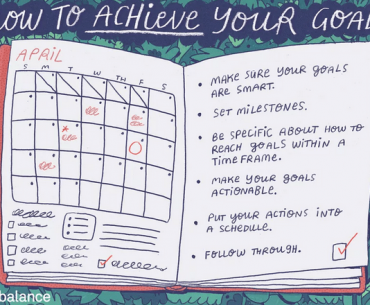 HOW TO ACHIEVE YOUR GOALS
APRIL
S M T W TH F S
• MAKE SURE YOUR GOALS
ARE SMART.
• SET MILESTONES.
• BE SPECIFIC ABOUT HOW TO
REACH GOALS WITHIN A
TIMEFRAME.
• MAKE YOUR GOALS
ACTIONABLE.
• PUT YOUR ACTIONS INTO
A SCHEDULE.
• FOLLOW THROUGH.
balance